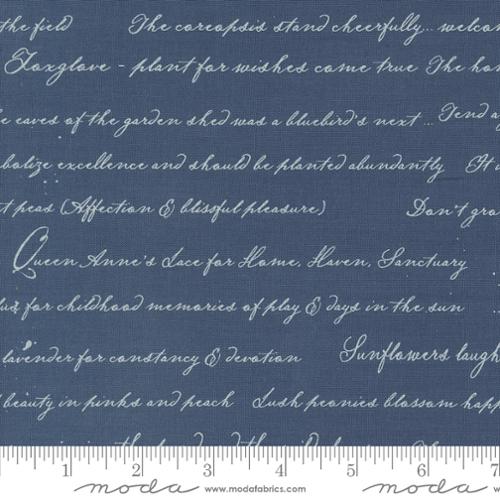 the field The coreopsis stand cheerfully... welcom
Foxglove - plant for wishes come true The hon
e eaves of the garden shed was a bluebird's next ... Tend a
bolize excellence and should be planted abundantly It i
t peas (Affection & blissful pleasure) Don't gro
Queen Anne's Lace for Home, Haven, Sanctuary
for childhood memories of play & days in the sun
lavender for constancy & devotion Sunflowers laugh
beauty in pinks and peach Lush peonies blossom happ
1 2 3 4 5 6 7
moda www.modafabrics.com moda www.modafabrics.com moda